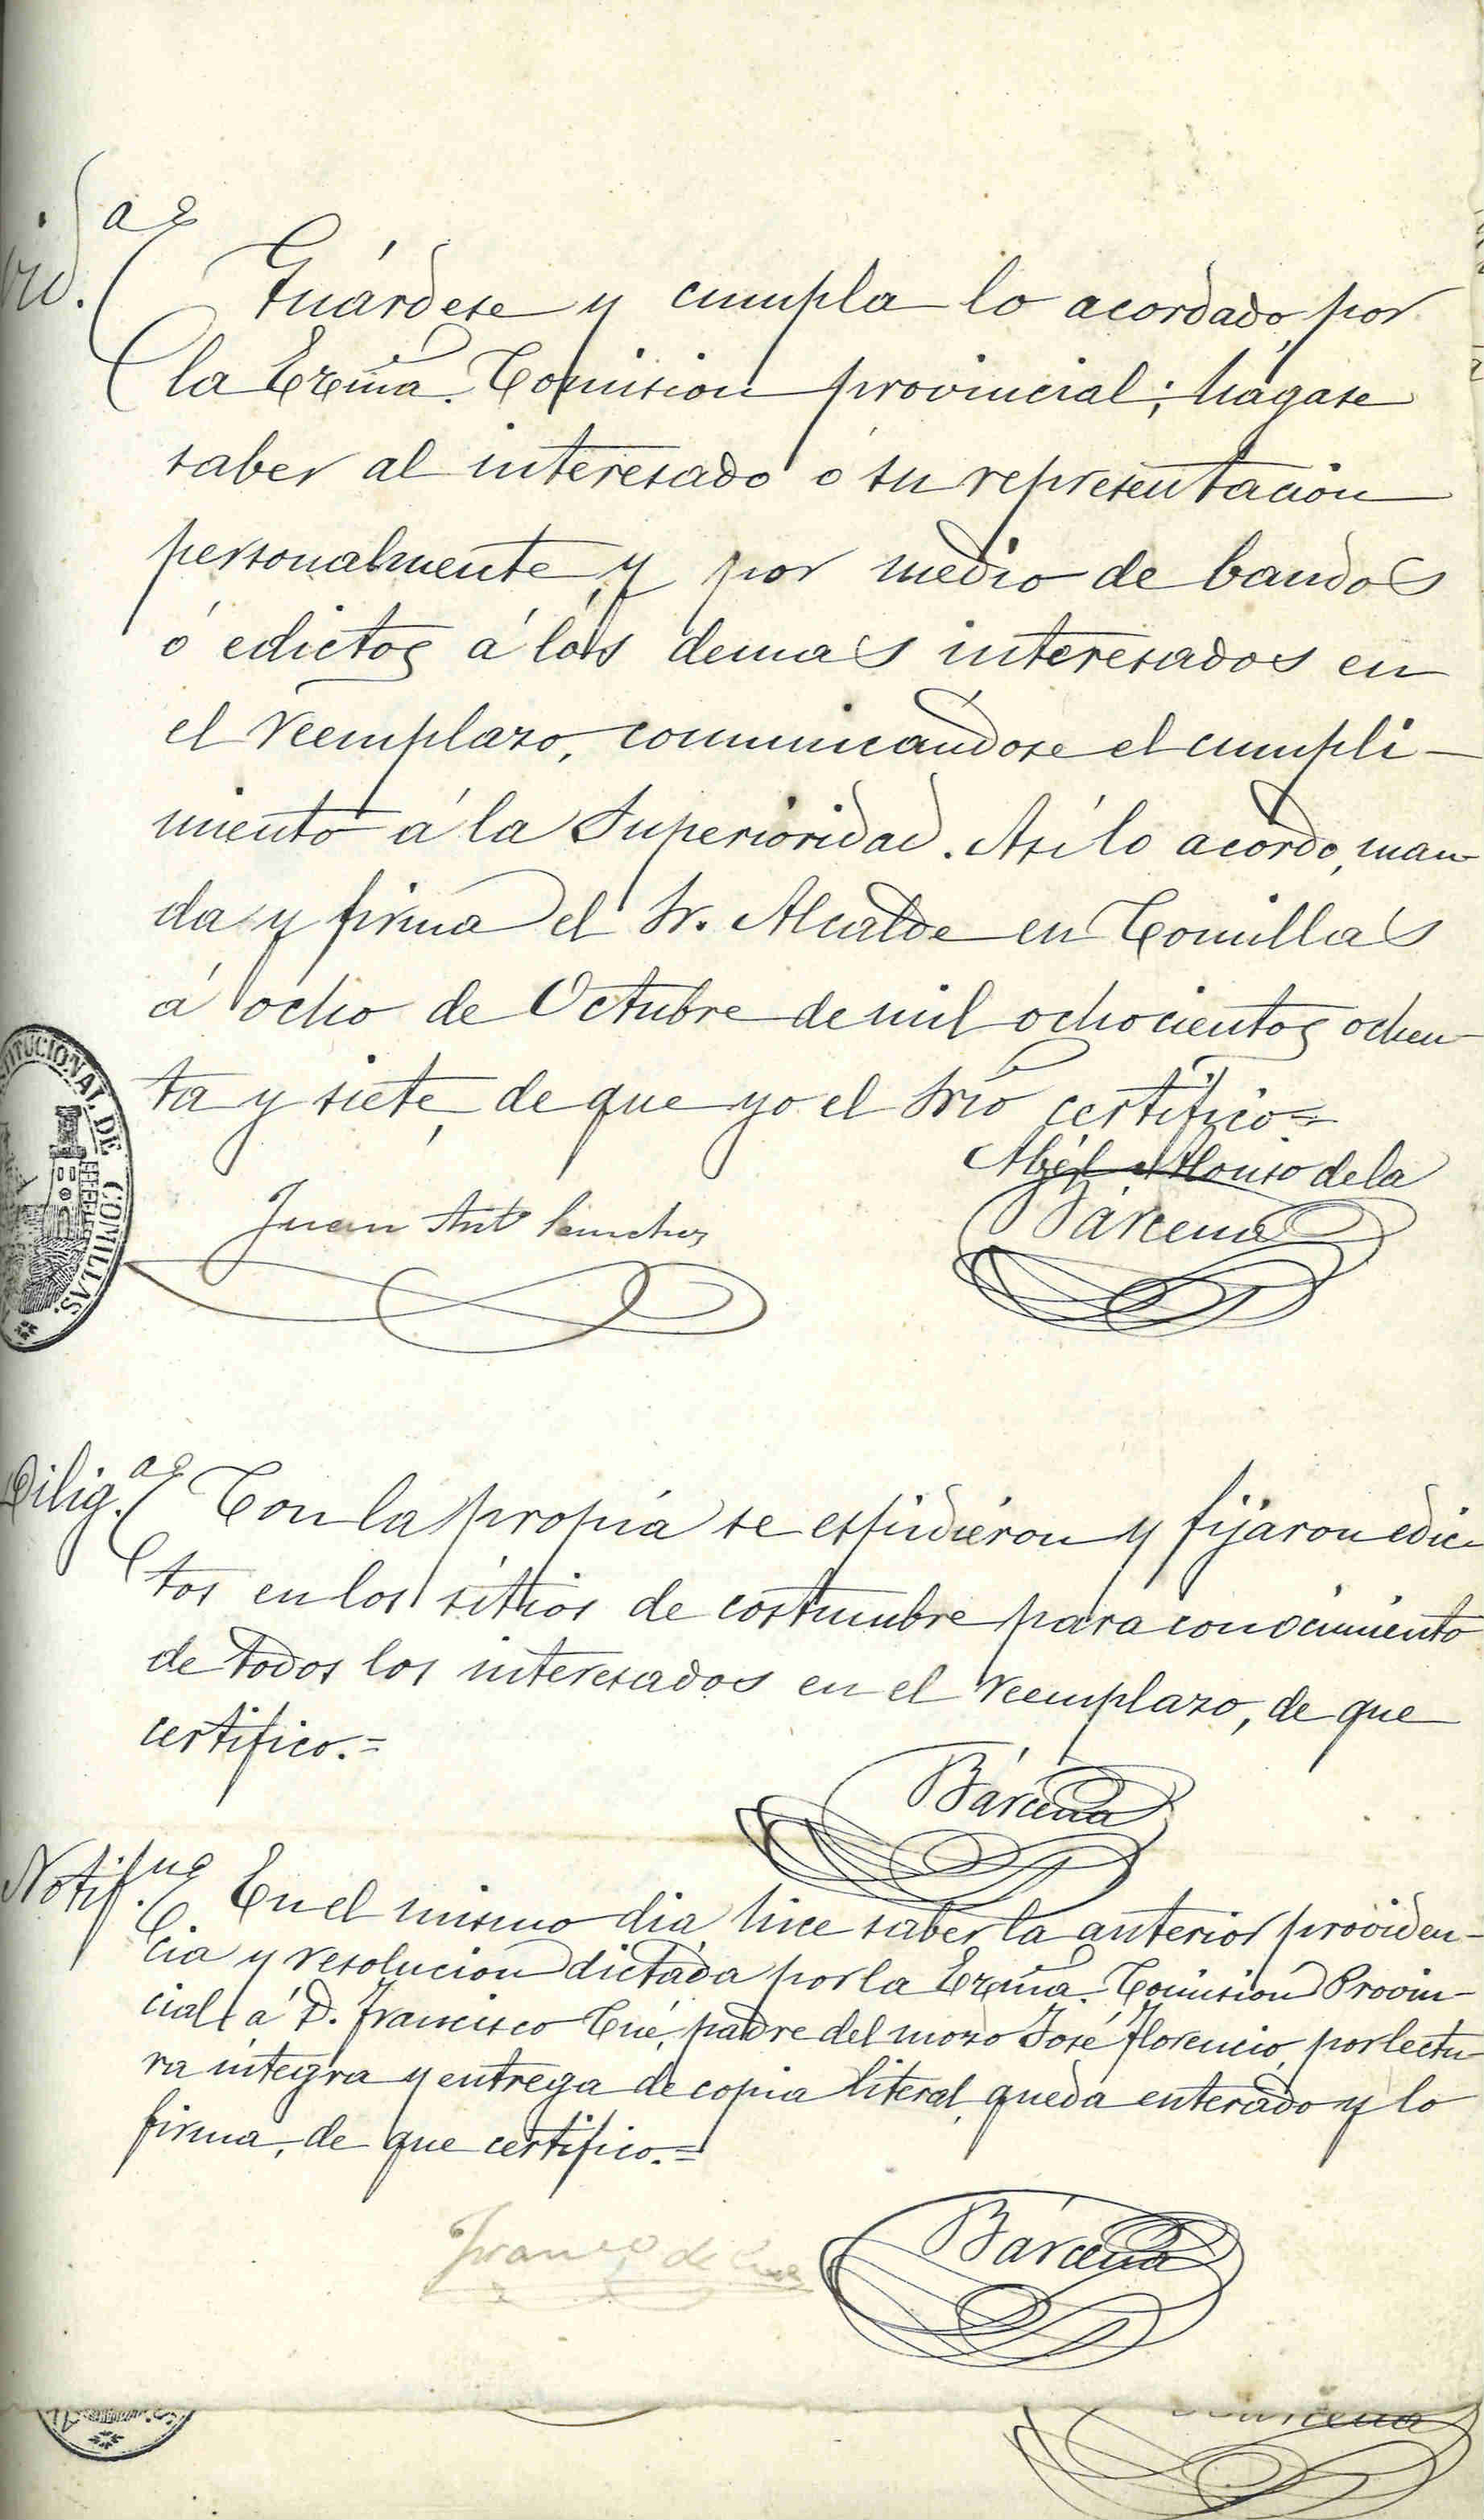 Guárdese y cumpla lo acordado por
la Excma. Comision provincial; hágase
saber al interesado ó su representación
personalmente, y por medio de bandos
ó edictos á los demas interesados en
el reemplazo, comunicandose el cumpli-
miento á la Superioridad. Asi lo acordo, man-
da y firma el Sr. Alcalde en Comillas
á ocho de Octubre de mil ochocientos ochen-
ta y siete, de que yo el Srio certifico=
Abél Alonso de la
Bárcena
Juan Antº Sanchez
ITUCIONAL DE COMILLAS.
Dilig.ª Con la propia se espidieron y fijaron edic-
tos en los sitios de costumbre para conocimiento
de todos los interesados en el reemplazo, de que
certifico.=
Bárcena
Notif.on En el mismo dia hice saber la anterior providen-
cia y resolucion dictada por la Excma. Comision Provin-
cial á D. Francisco Cué, padre del mozo José Florencio, por lectu-
ra integra y entrega de copia literal, queda enterado y lo
firma, de que certifico.=
Franco de Cue
Bárcena
Bárcena